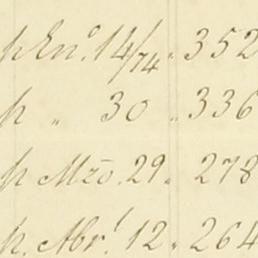 p Enº. 14/74 „ 352
p „ 30 „ 336
p Mzō. 29 „ 278
p. Abr.l 12 „ 264